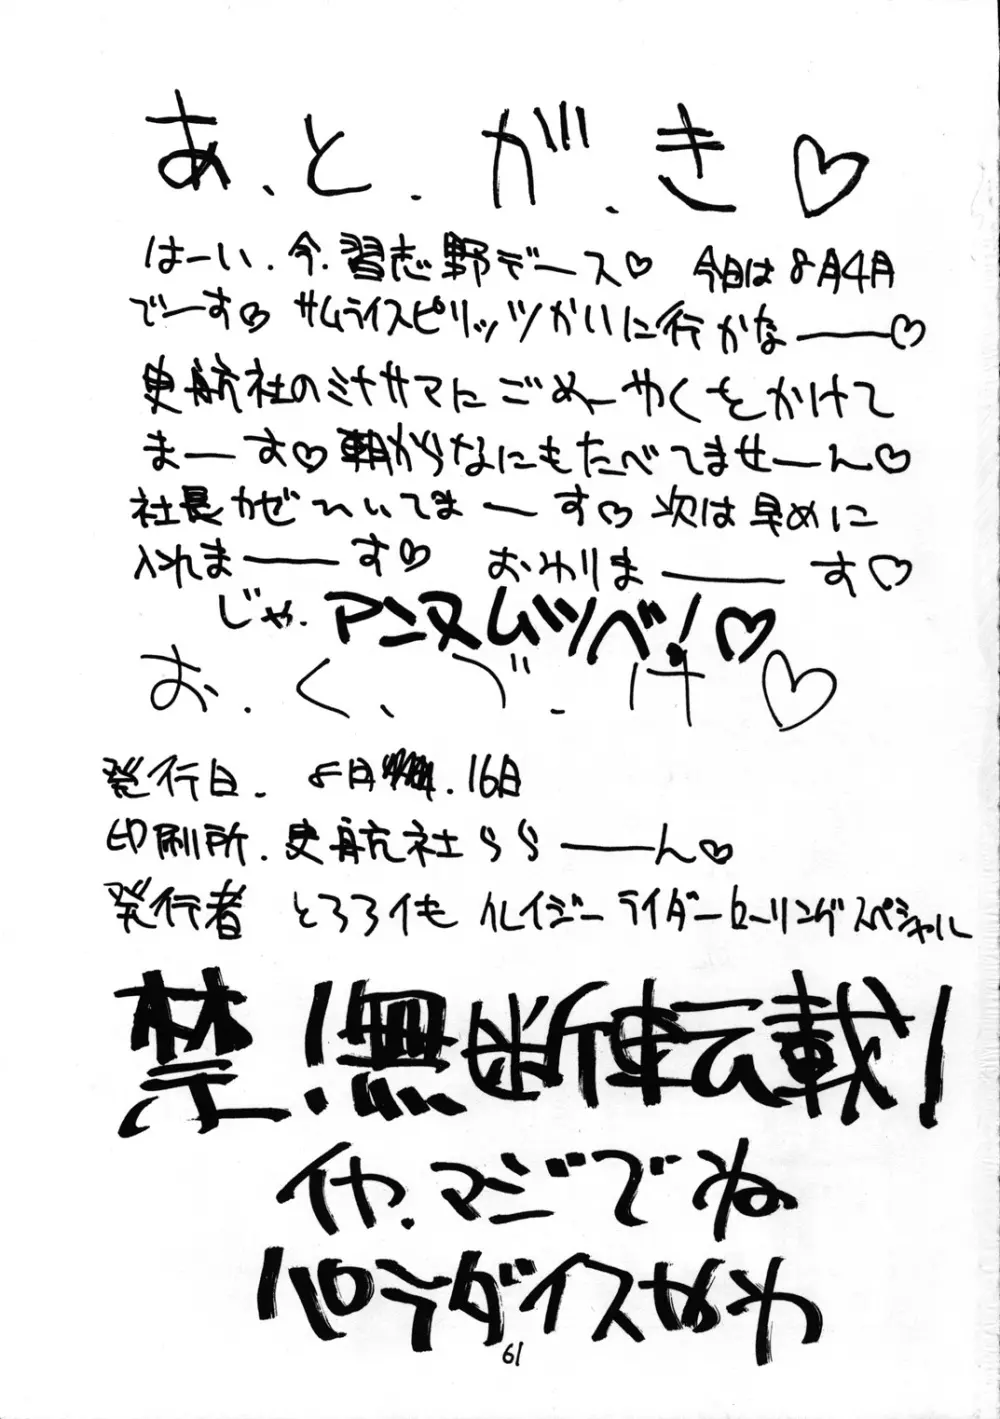 あ.と.が.き♡
はーい.今.習志野デース♡ 今日は8月4日
でーす♡ サムライスピリッツかいに行かなーー♡
史航社のミナサマにごめーやくをかけて
まーーす♡ 朝からなにもたべてませーん♡
社長かぜひいてまーーす♡ 次は早めに
入れまーーす♡ おわりまーーーす♡
じゃ.アンヌムツベ!♡
お.く.づ.け♡
発行日. 8月 .16日
印刷所.史航社ららーーん♡
発行者 とろろイも クレイジーライダーローリングスペシャル
禁!無断転載!
イヤ.マジでね
パラダイスやわ
61